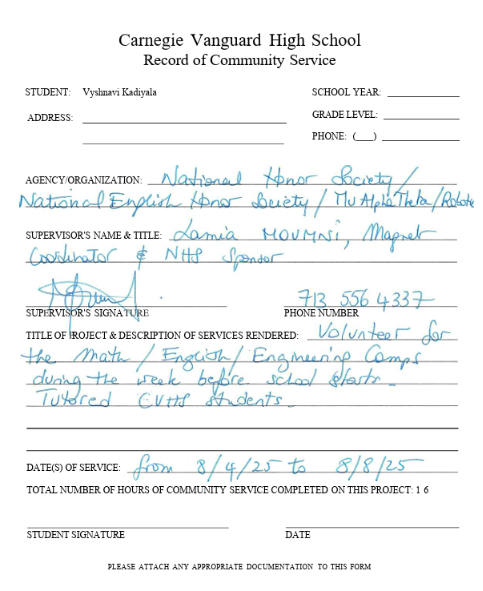 Carnegie Vanguard High School
Record of Community Service
STUDENT: Vyshnavi Kadiyala SCHOOL YEAR:
ADDRESS: GRADE LEVEL:
PHONE: (___)
AGENCY/ORGANIZATION: National Honor Society /
National English Honor Society / Mu Alpha Theta /
SUPERVISOR'S NAME & TITLE: Lamia MOUMNI, Magnet
Coordinator & NHS Sponsor
713 556 4337
SUPERVISOR'S SIGNATURE PHONE NUMBER
TITLE OF PROJECT & DESCRIPTION OF SERVICES RENDERED: Volunteer for
the Math / English / Engineering Camps
during the week before school starts.
Tutored CVHS students.
DATE(S) OF SERVICE: from 8/4/25 to 8/8/25
TOTAL NUMBER OF HOURS OF COMMUNITY SERVICE COMPLETED ON THIS PROJECT: 1 6
STUDENT SIGNATURE DATE
PLEASE ATTACH ANY APPROPRIATE DOCUMENTATION TO THIS FORM